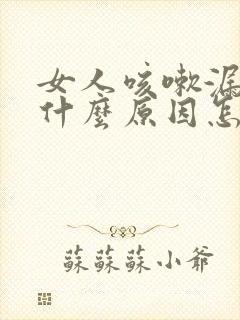 女人咳嗽漏
什麼原因怎
蘇蘇蘇小爺